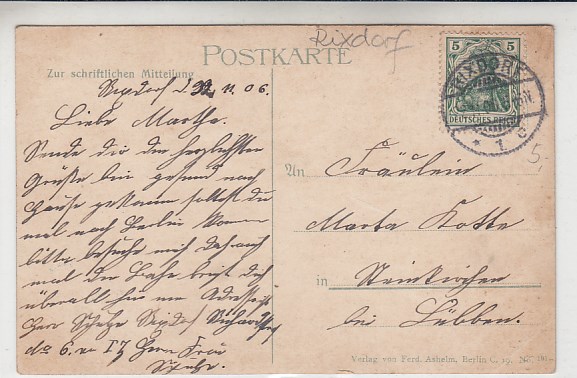 Rixdorf
POSTKARTE
Zur schriftlichen Mitteilung
Rixdorf d. 11. 06.
Liebe Martha.
Sende dir die herzlichsten
Grüße bin gesund nach
Hause gekommen solltest du
mal nach Berlin kommen
bitte besuche mich
mal die Bahn bringt dich
überall hin Adresse
Herr Schulze Rixdorf Richardstr
No 6. Herrn Frau
Schulze.
5 5
DEUTSCHES REICH
RIXDORF
* 1 c
5,-
An Fräulein
Marta Kotte
in Steinkirchen
bei Lübben.
Verlag von Ferd. Ashelm, Berlin C. 19. No.